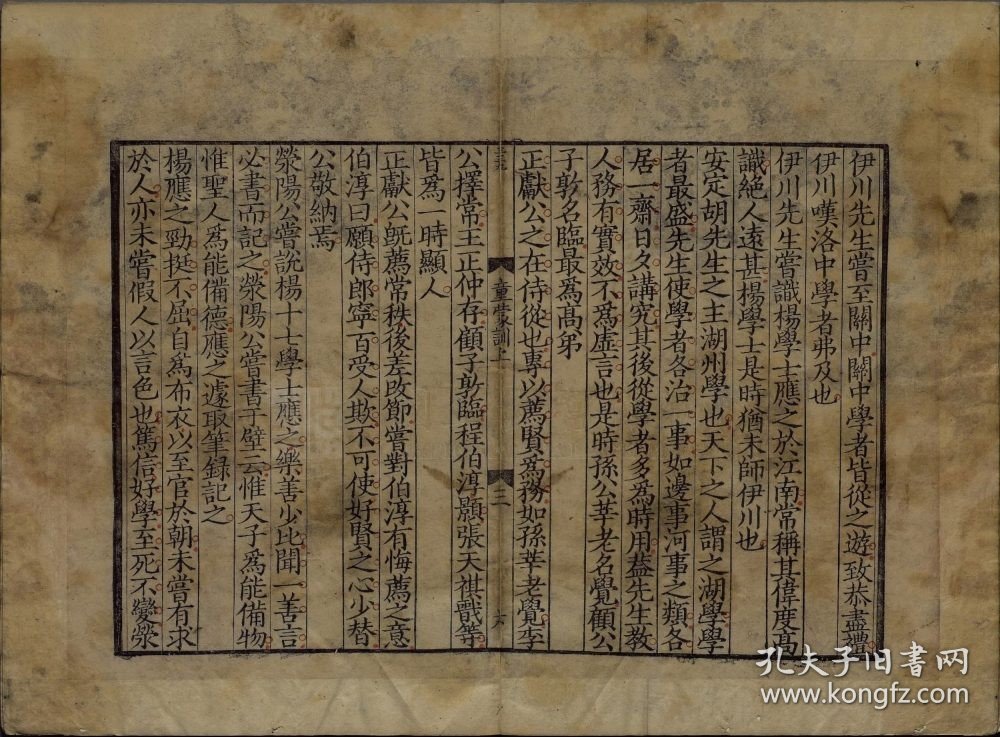 伊川先生嘗至關中關中學者皆從之遊致恭盡禮
伊川嘆洛中學者弗及也
伊川先生嘗識楊學士應之於江南常稱其偉度高
識絶人遠甚楊學士是時猶未師伊川也
安定胡先生之主湖州學也天下之人謂之湖學學
者最盛先生使學者各治一事如邊事河事之類各
居一齋日夕講究其後從學者多爲時用葢先生教
人務有實效不爲虛言也是時孫公莘老名覺顧公
子敦名臨最爲髙弟
正獻公之在侍從也專以薦賢爲務如孫莘老覺李
童蒙訓上
三
公擇常王正仲存顧子敦臨程伯淳顥張天祺戬等
皆爲一時顯人
正獻公旣薦常秩後差改節嘗對伯淳有悔薦之意
伯淳曰願侍郎寧百受人欺不可使好賢之心少替
公敬納焉
滎陽公嘗說楊十七學士應之樂善少比聞一善言
必書而記之滎陽公嘗書于壁云惟天子爲能備物
惟聖人爲能備德應之遽取筆録記之
楊應之勁挺不屈自爲布衣以至官於朝未嘗有求
於人亦未嘗假人以言色也篤信好學至死不變滎
孔夫子旧书网
www.kongfz.com